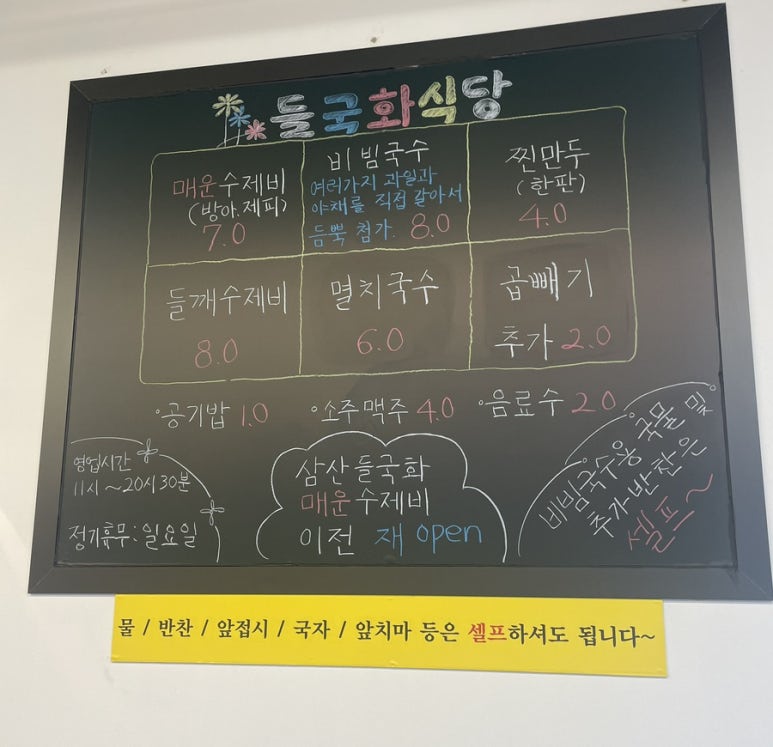 들국화식당
매운 수제비
(방아.제피)
7.0
비빔국수
여러가지 과일과
야채를 직접 갈아서
듬뿍 첨가. 8.0
찐만두
(한판)
4.0
들깨수제비
8.0
멸치국수
6.0
곱빼기
추가 2.0
·공기밥 1.0 ·소주맥주 4.0 ·음료수 2.0
영업시간
11시~20시30분
정기휴무:일요일
삼산들국화
매운수제비
이전 재 open
비빔국수용 국물 및
추가반찬은
셀프~
물 / 반찬 / 앞접시 / 국자 / 앞치마 등은 셀프하셔도 됩니다~